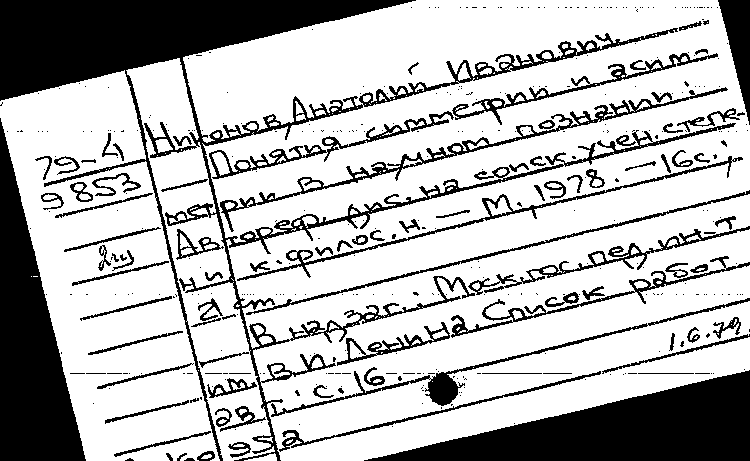 Никонов, Анатолий Иванович.
79-4 Понятия симметрии и асим-
9853 метрии в научном познании :
Автореф. дис. на соиск. учен. степе-
2ип ни к. филос. н. — М., 1978. — 16с.;
21 см.
В надзаг.: Моск. гос. пед. ин-т
им. В. И. Ленина. Список работ
авт.: с. 16.
1.6.79.
952